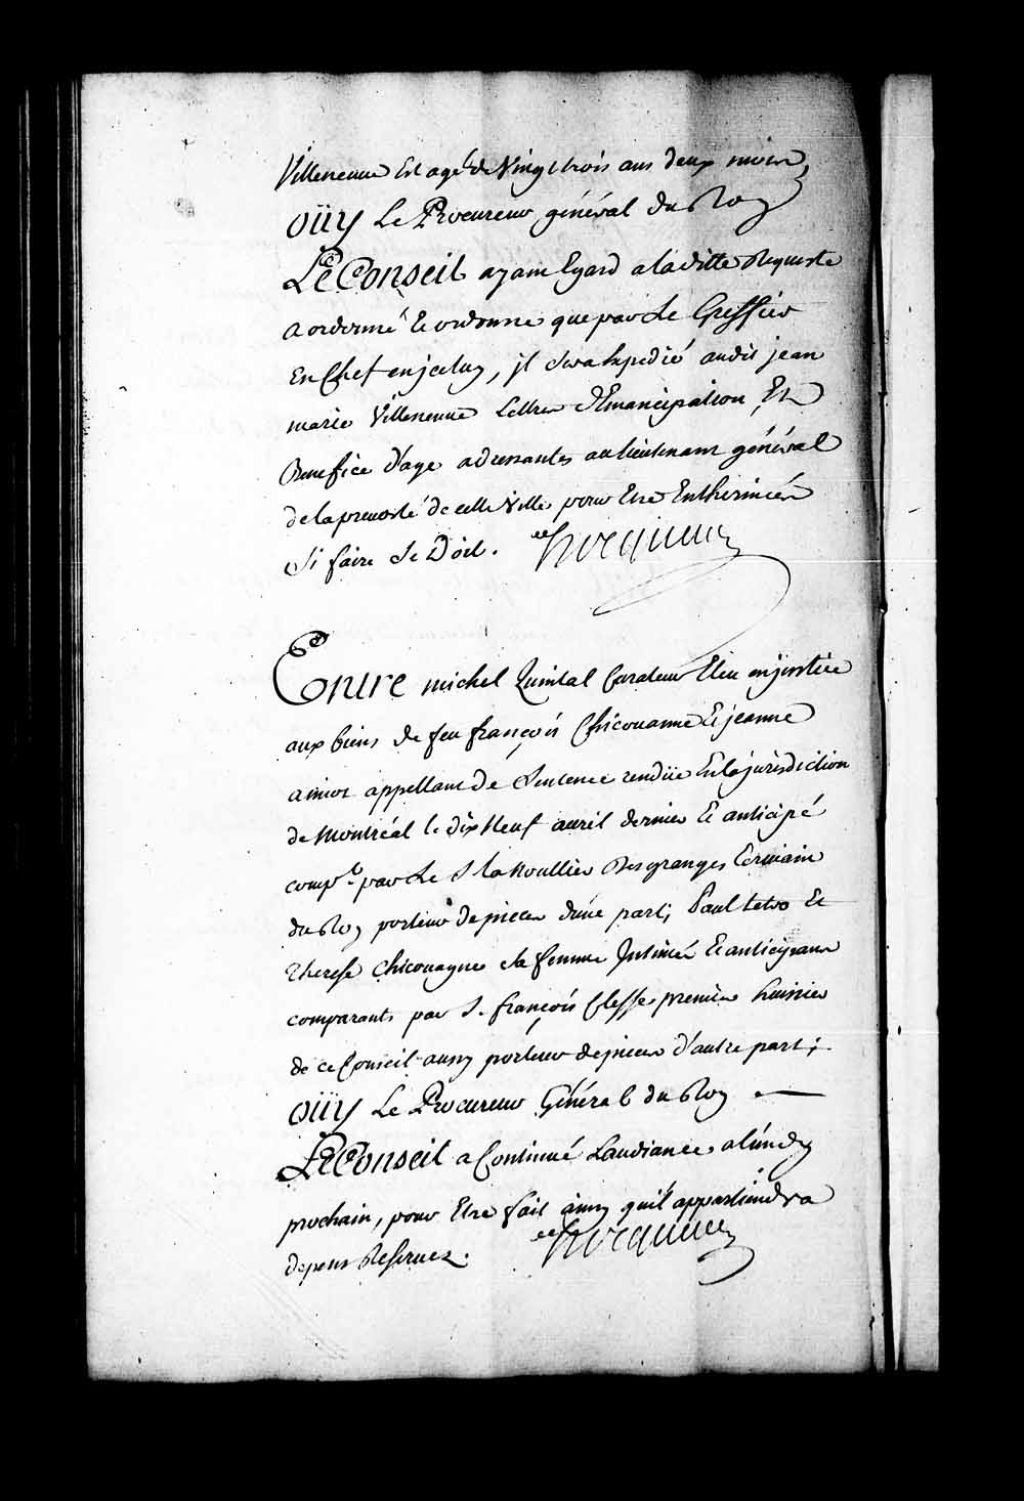 Villeneuve Est agé de Vingt trois ans deux mois,
oüy Le Procureur général du Roy
Le Conseil ayant Egard a la ditte Requeste
a ordonné Et ordonne que par Le Greffier
En Chef en jceluy, jl sera Expedié audit jean
marie Villeneuve Lettres d'Emancipation, Et
Benefice d'age adressantes au lieutenant général
de la prevosté de cette Ville pour Etre Entherinées
Si faire Se Doit. Hocquart
Entre michel Quintal Curateur Eleu en justice
aux biens de feu françois Chicouanne Et jeanne
amiot appellant de Sentence rendüe En la jurisdiction
de Montréal le dix Neuf avril dernier Et anticipé
comp.t par Le S. la Noullier Desgranges Ecrivain
du Roy porteur de pieces d'une part; Paul tetro Et
therese Chicouagne sa femme Intimés Et anticipans
comparants par S. françois Clesse premier huissier
de ce Conseil aussy porteur de pieces d'autre part;
oüy Le Procureur Général du Roy
Le Conseil a Continué Laudiance a lundy
prochain, pour Etre fait ainsy quil appartiendra
depens Reservez. Hocquart